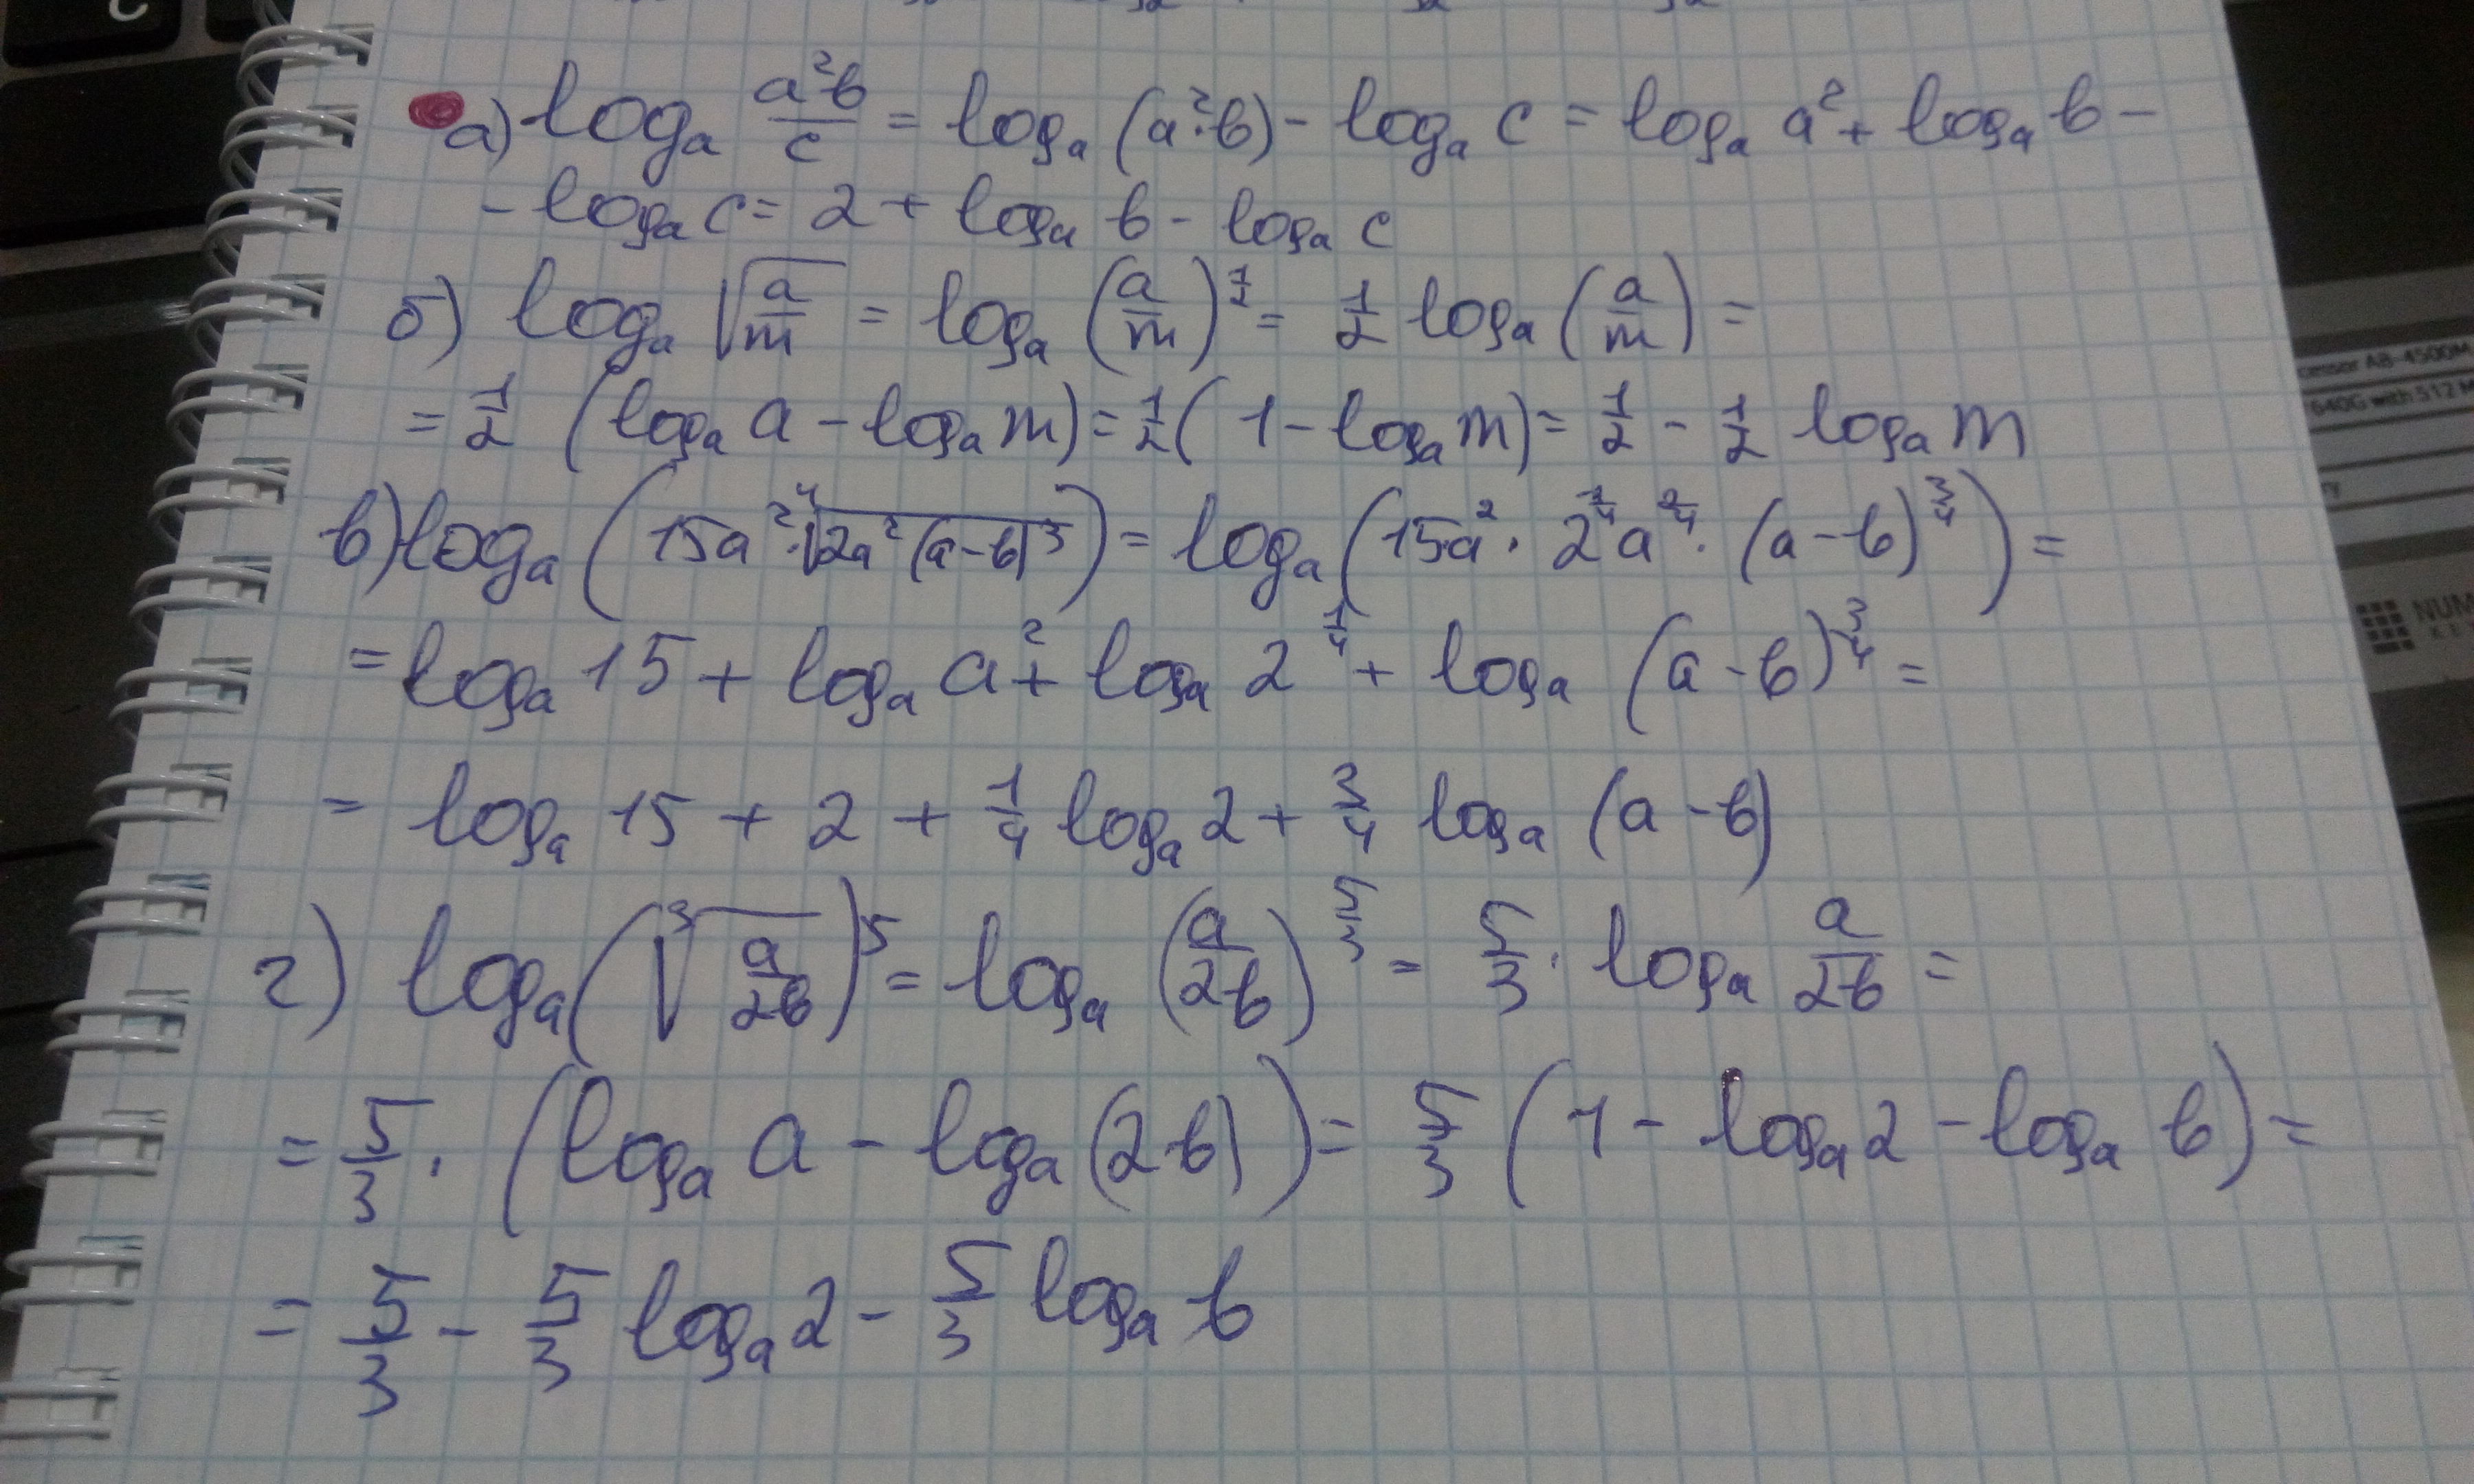 а) log_a a²b/c = log_a (a²·b) - log_a c = log_a a² + log_a b -
- log_a c = 2 + log_a b - log_a c
б) log_a √(a/m) = log_a (a/m)^(1/2) = 1/2 log_a (a/m) =
= 1/2 (log_a a - log_a m) = 1/2 (1 - log_a m) = 1/2 - 1/2 log_a m
в) log_a (15a² · ⁴√(2a²(a-b)³)) = log_a (15a² · 2^(1/4) a^(2/4) · (a-b)^(3/4)) =
= log_a 15 + log_a a² + log_a 2^(1/4) + log_a (a-b)^(3/4) =
= log_a 15 + 2 + 1/4 log_a 2 + 3/4 log_a (a-b)
г) log_a (³√(a/2b))^5 = log_a (a/2b)^(5/3) = 5/3 · log_a a/2b =
= 5/3 · (log_a a - log_a (2b)) = 5/3 (1 - log_a 2 - log_a b) =
= 5/3 - 5/3 log_a 2 - 5/3 log_a b
640G with 512 M
NUM